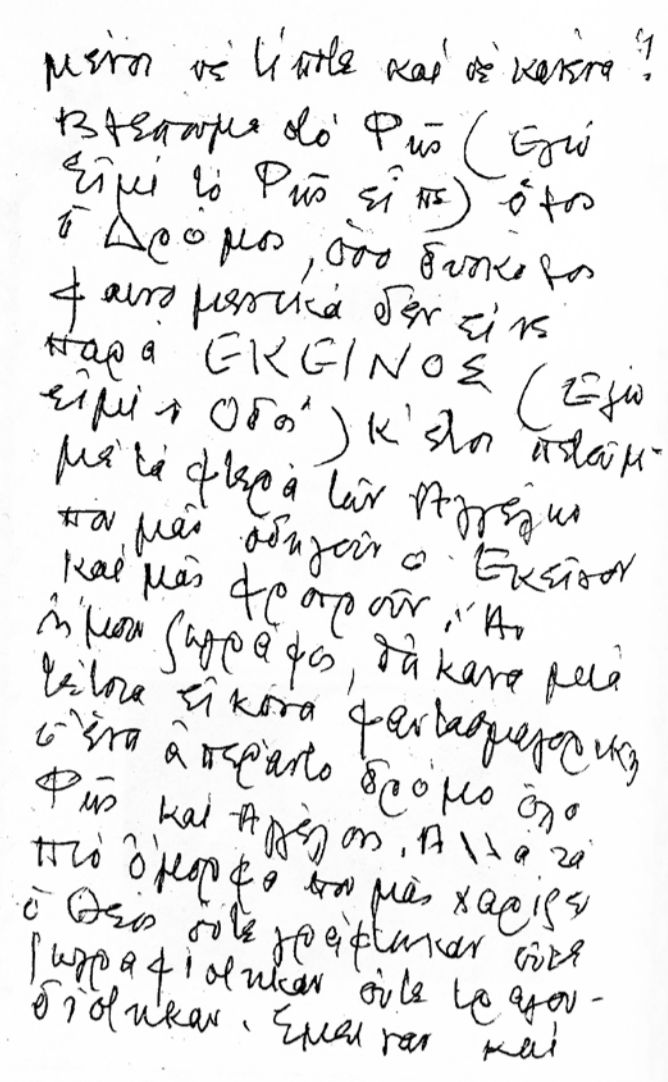 μένοι σέ τίποτε καί σέ κανένα!
Βλέπουμε στό Φῶς (Ἐγώ
εἰμί τό Φῶς εἶπε) ὅλος
ὁ Δρόμος, ὅσο δύσκολος
φαινομενικά δέν εἶναι
παρά ΕΚΕΙΝΟΣ (Ἐγώ
εἰμί ἡ Ὁδός) κ' ἔτσι πετοῦμε
μέ τά φτερά τῶν Ἀγγέλων
πού μᾶς ὁδηγοῦν σ' Ἐκεῖνον
καί μᾶς φρουροῦν. Ἄν
ἤμουν ζωγράφος, θά κανα μιά
τέτοια εἰκόνα φαντασμαγορική
σ' ἕνα ἀπέραντο δρόμο ὅλο
Φῶς καί Ἀγγέλους. Ἀλλά τά
πιό ὄμορφα πού μᾶς χαρίζει
ὁ Θεός οὔτε γράφτηκαν οὔτε
ζωγραφίστηκαν οὔτε τραγου-
δίστηκαν. Ἔμειναν καί